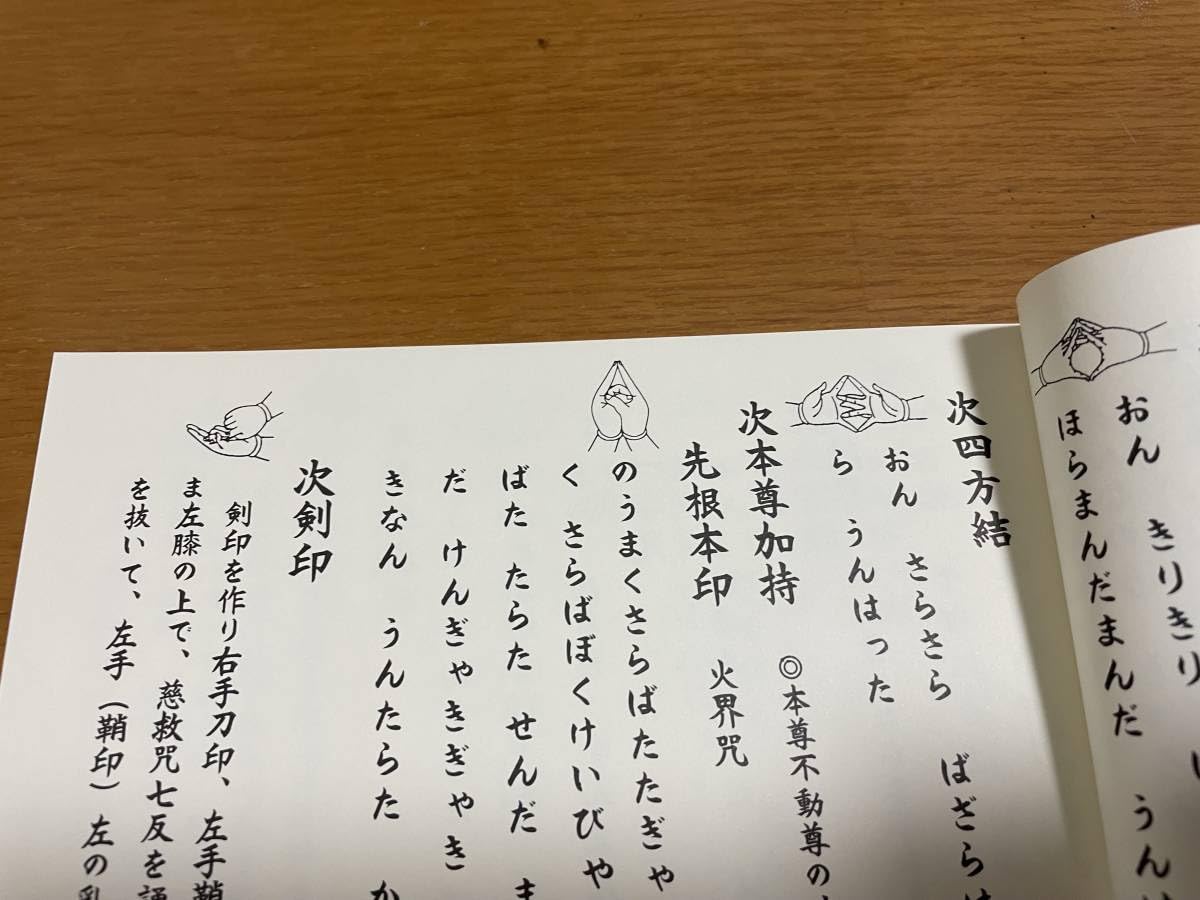 おん きりきり
ほらまんだまんだ うん
次四方結
おん さらさら ばざらは
ら うんはった
次本尊加持 ◎本尊不動尊の
先根本印 火界咒
のうまくさらばたたぎゃ
く さらばぼくけいびゃ
ばた たらた せんだ ま
だ けんぎゃきぎゃき
きなん うんたらた か
次剣印
剣印を作り右手刀印、左手鞘
ま左膝の上で、慈救咒七反を誦
を抜いて、左手（鞘印）左の乳